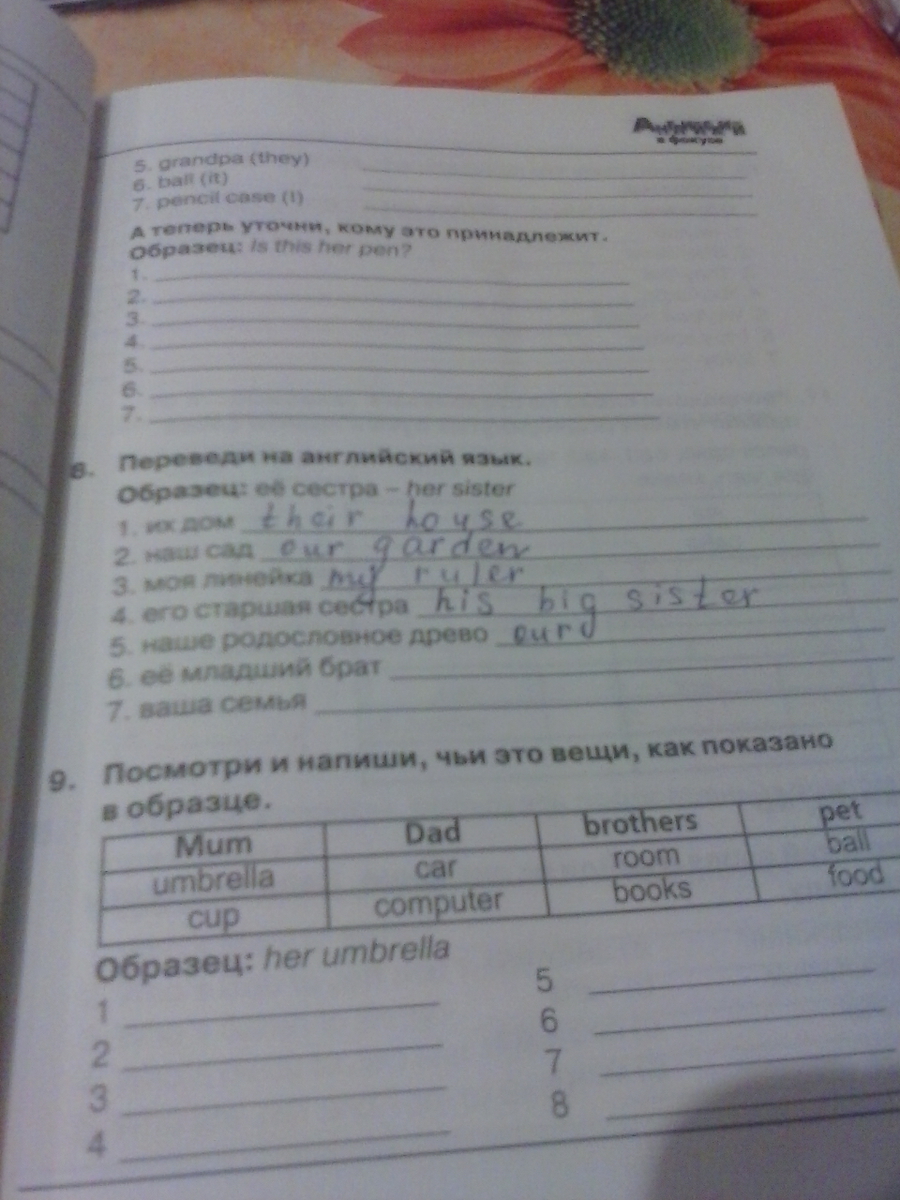 Английский
в фокусе
5. grandpa (they)
6. ball (it)
7. pencil case (I)
А теперь уточни, кому это принадлежит.
Образец: Is this her pen?
1.
2.
3.
4.
5.
6.
7.
8. Переведи на английский язык.
Образец: её сестра – her sister
1. их дом their house
2. наш сад our garden
3. моя линейка my ruler
4. его старшая сестра his big sister
5. наше родословное древо our
6. её младший брат
7. ваша семья
9. Посмотри и напиши, чьи это вещи, как показано
в образце.
Mum Dad brothers pet
umbrella car room ball
cup computer books food
Образец: her umbrella
1
2
3
4
5
6
7
8